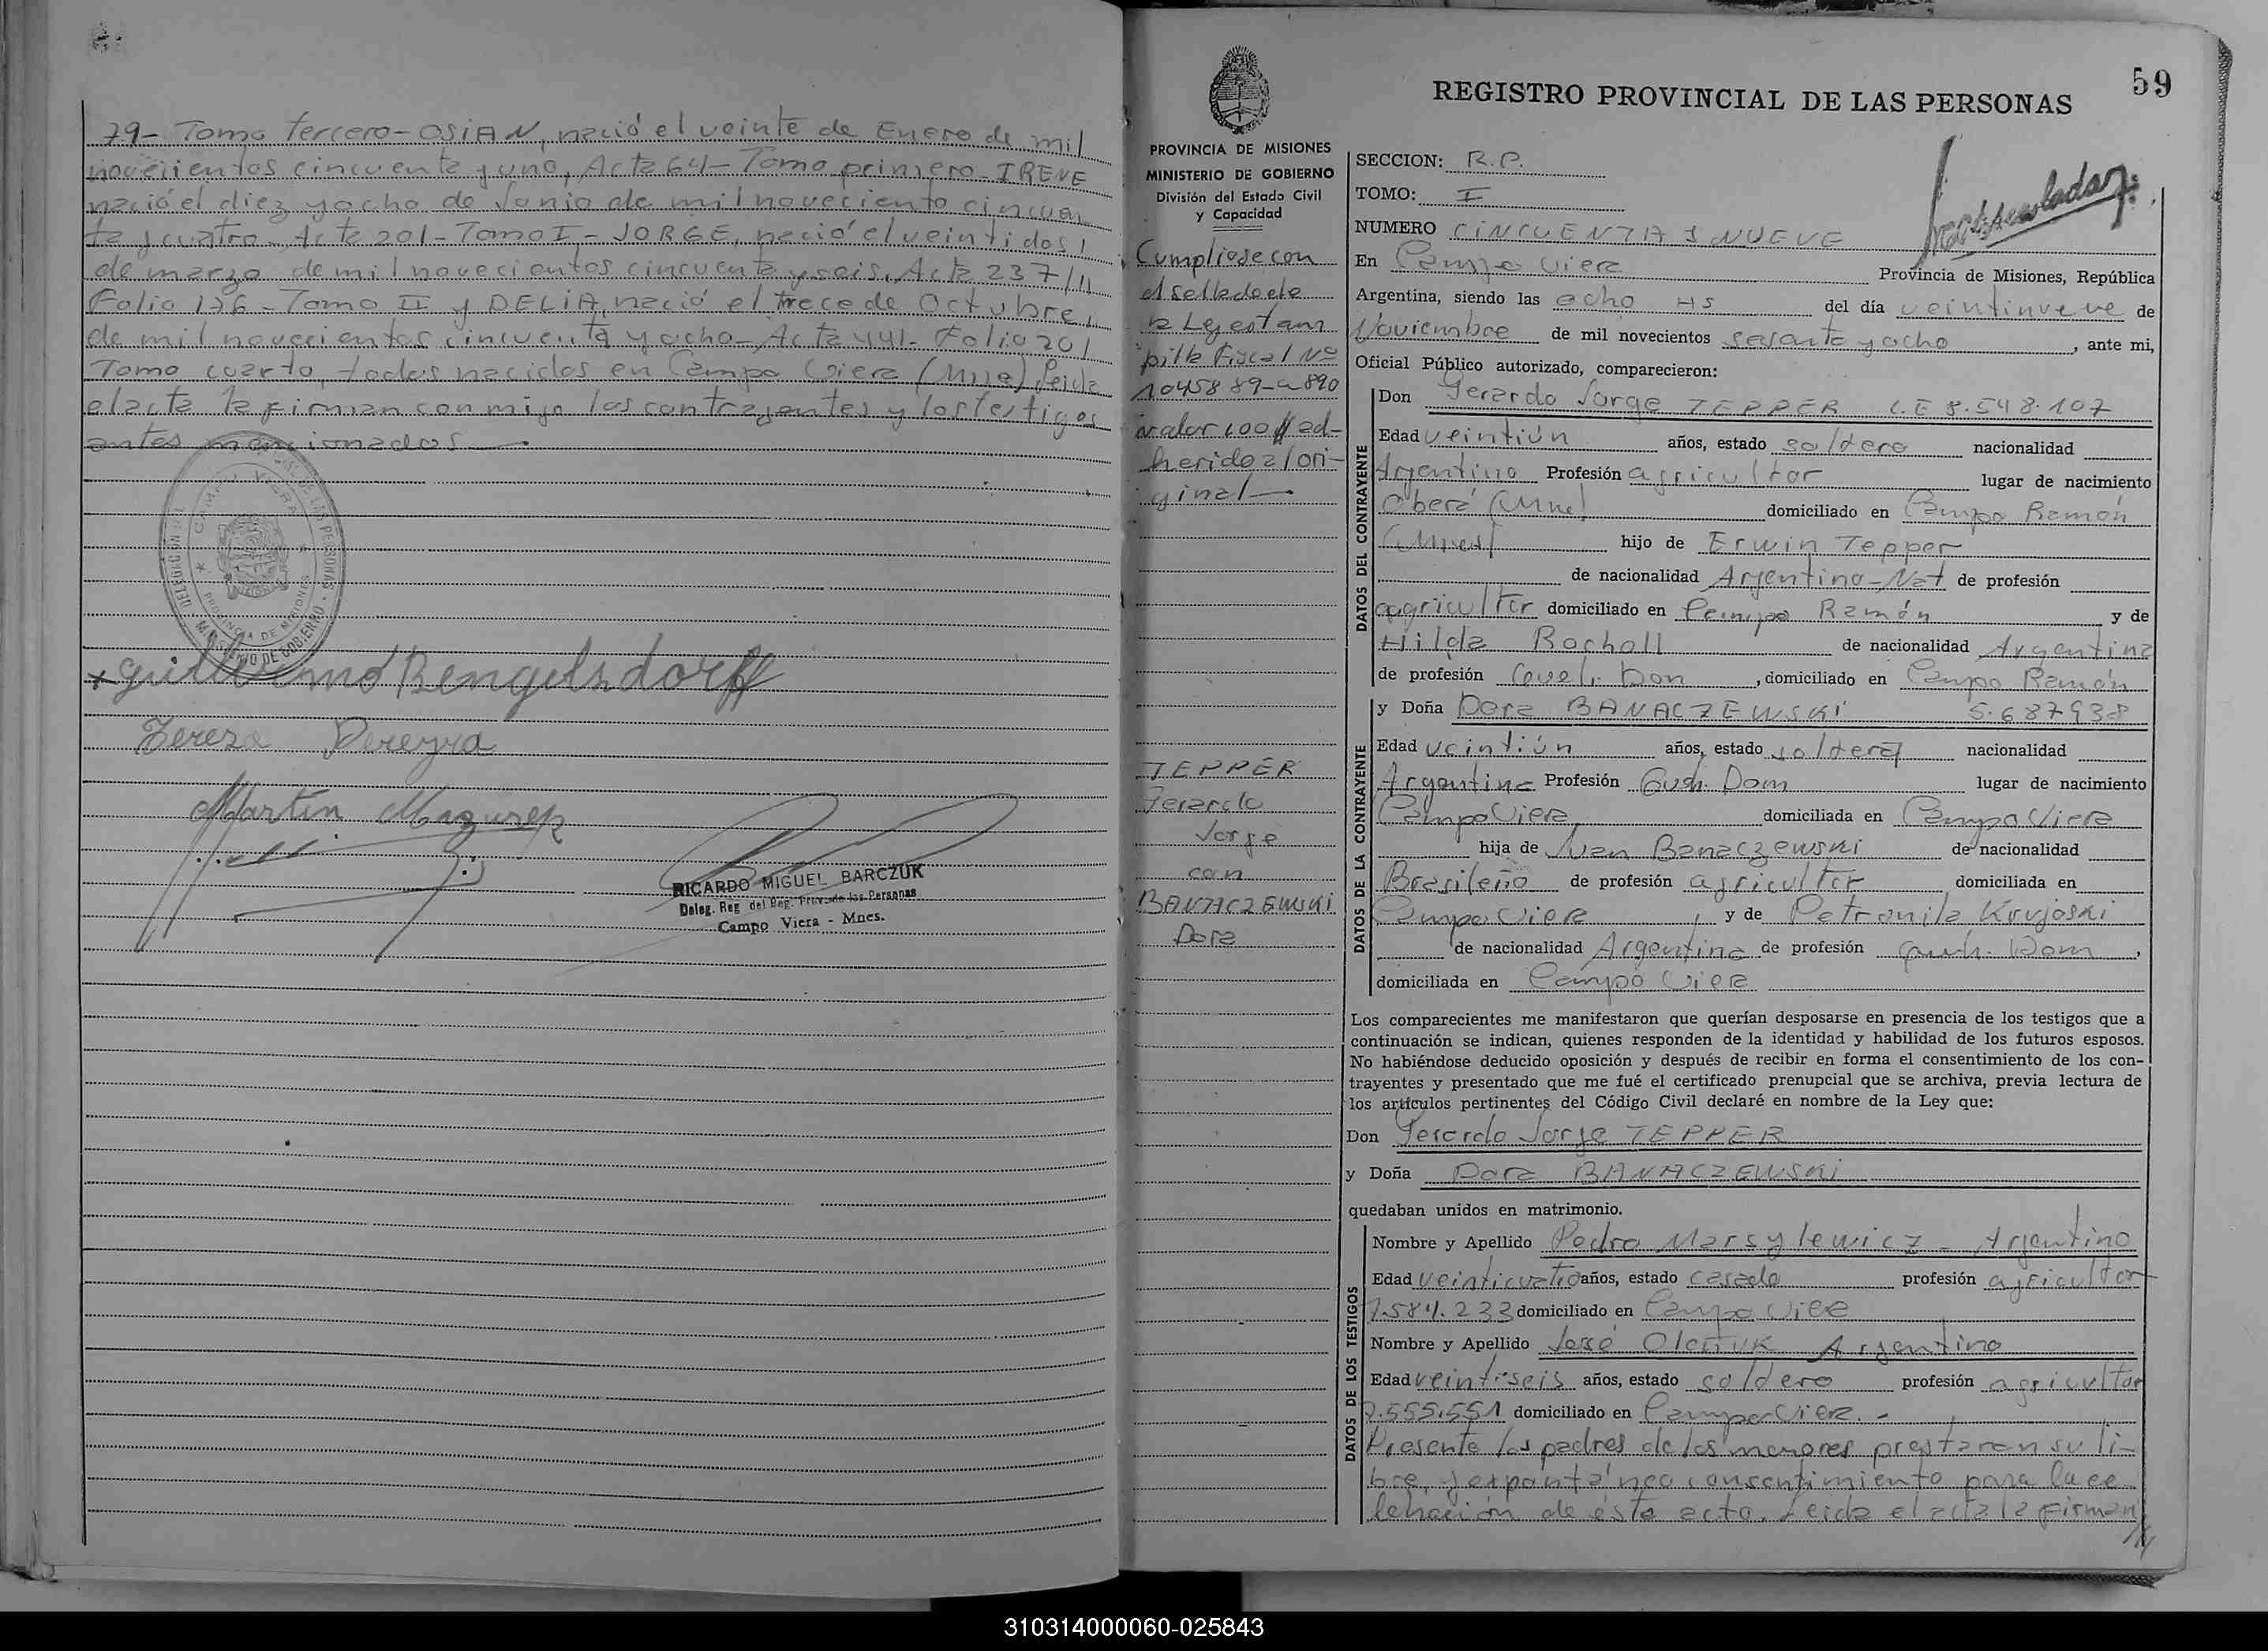 79- Tomo tercero- OSIAN, nació el veinte de Enero de mil
novecientos cincuenta y uno, Acta 64- Tomo primero- IRENE
nació el diez y ocho de Junio de mil noveciento cincuen
ta y cuatro- Acta 201- Tomo I- JORGE, nació el veintidos
de marzo de mil novecientos cincuenta y seis, Acta 237/11
Folio 126- Tomo II y DELIA, nació el trece de Octubre
de mil novecientos cincuenta y ocho- Acta 441- Folio 201
Tomo cuarto, todos nacidos en Campo Viera (Mnes) Leida
el acta la firman conmigo los contrayentes y los testigos
antes mencionados
CAMPO VIERA
PROVINCIA DE MISIONES
MINISTERIO DE GOBIERNO
x Guillermo Bengelsdorff
Tereza Pereyra
Martin Mazurek
RICARDO MIGUEL BARCZUK
Deleg. Reg. del Reg. Prov. de las Personas
Campo Viera - Mnes.
59
REGISTRO PROVINCIAL DE LAS PERSONAS
PROVINCIA DE MISIONES
MINISTERIO DE GOBIERNO
División del Estado Civil
y Capacidad
Cumpliose con
el sellado de
la Ley estam
pilla Fiscal Nº
1045889-a 890
valor 100 ad-
herido al ori-
ginal-
TEPPER
Gerardo
Jorge
con
BANACZEWSKI
Dora
SECCION: R.P.
TOMO: I
NUMERO CINCUENTA Y NUEVE
En Campo Viera Provincia de Misiones, República
Argentina, siendo las ocho HS del día veintinueve de
Noviembre de mil novecientos sesenta y ocho, ante mi,
Oficial Público autorizado, comparecieron:
DATOS DEL CONTRAYENTE
Don Gerardo Jorge TEPPER L.E 8.548.107
Edad veintiún años, estado soldero nacionalidad
Argentino Profesión agricultor lugar de nacimiento
Oberá (Mnes) domiciliado en Campo Ramón
(Mnes) hijo de Erwin Tepper
de nacionalidad Argentino-Nat de profesión
agricultor domiciliado en Campo Ramón y de
Hilda Bocholl de nacionalidad Argentina
de profesión Dom, domiciliado en Campo Ramón
DATOS DE LA CONTRAYENTE
y Doña Dora BANACZEWSKI 5.687938
Edad veintiún años, estado soldera nacionalidad
Argentina Profesión Queh. Dom lugar de nacimiento
Campo Viera domiciliada en Campo Viera
hija de Juan Banaczewski de nacionalidad
Brasileño de profesión agricultor domiciliada en
Campo Viera, y de Petronila Krujoski
de nacionalidad Argentina de profesión queh. Dom,
domiciliada en Campo Viera
Los comparecientes me manifestaron que querían desposarse en presencia de los testigos que a
continuación se indican, quienes responden de la identidad y habilidad de los futuros esposos.
No habiéndose deducido oposición y después de recibir en forma el consentimiento de los con-
trayentes y presentado que me fué el certificado prenupcial que se archiva, previa lectura de
los artículos pertinentes del Código Civil declaré en nombre de la Ley que:
Don Gerardo Jorge TEPPER
y Doña Dora BANACZEWSKI
quedaban unidos en matrimonio.
DATOS DE LOS TESTIGOS
Nombre y Apellido Pedro Marsylewicz - Argentino
Edad veinticuatro años, estado casado profesión agricultor
7.584.233 domiciliado en Campo Viera
Nombre y Apellido José Argentino
Edad veintiseis años, estado soldero profesión agricultor
7.555.551 domiciliado en Campo Viera.-
Presente los padres de los menores prestaron su li-
bre y expontáneo consentimiento para la ce
lebración de ésta acto. Leida el acta la firman
310314000060-025843